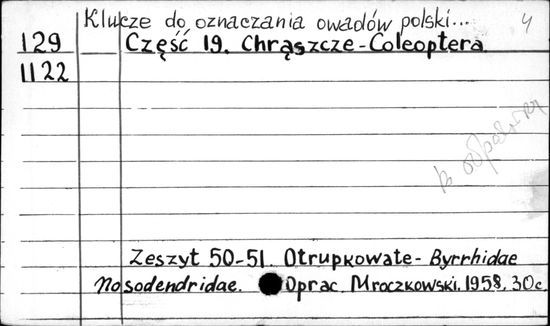 Klucze do oznaczania owadów polski... 4
129 Część 19. Chrąszcze-Coleoptera
1122
Zeszyt 50-51. Otrupkowate-Byrrhidae
Nosodendridae. Oprac. Mroczkowski. 1958. 30c.